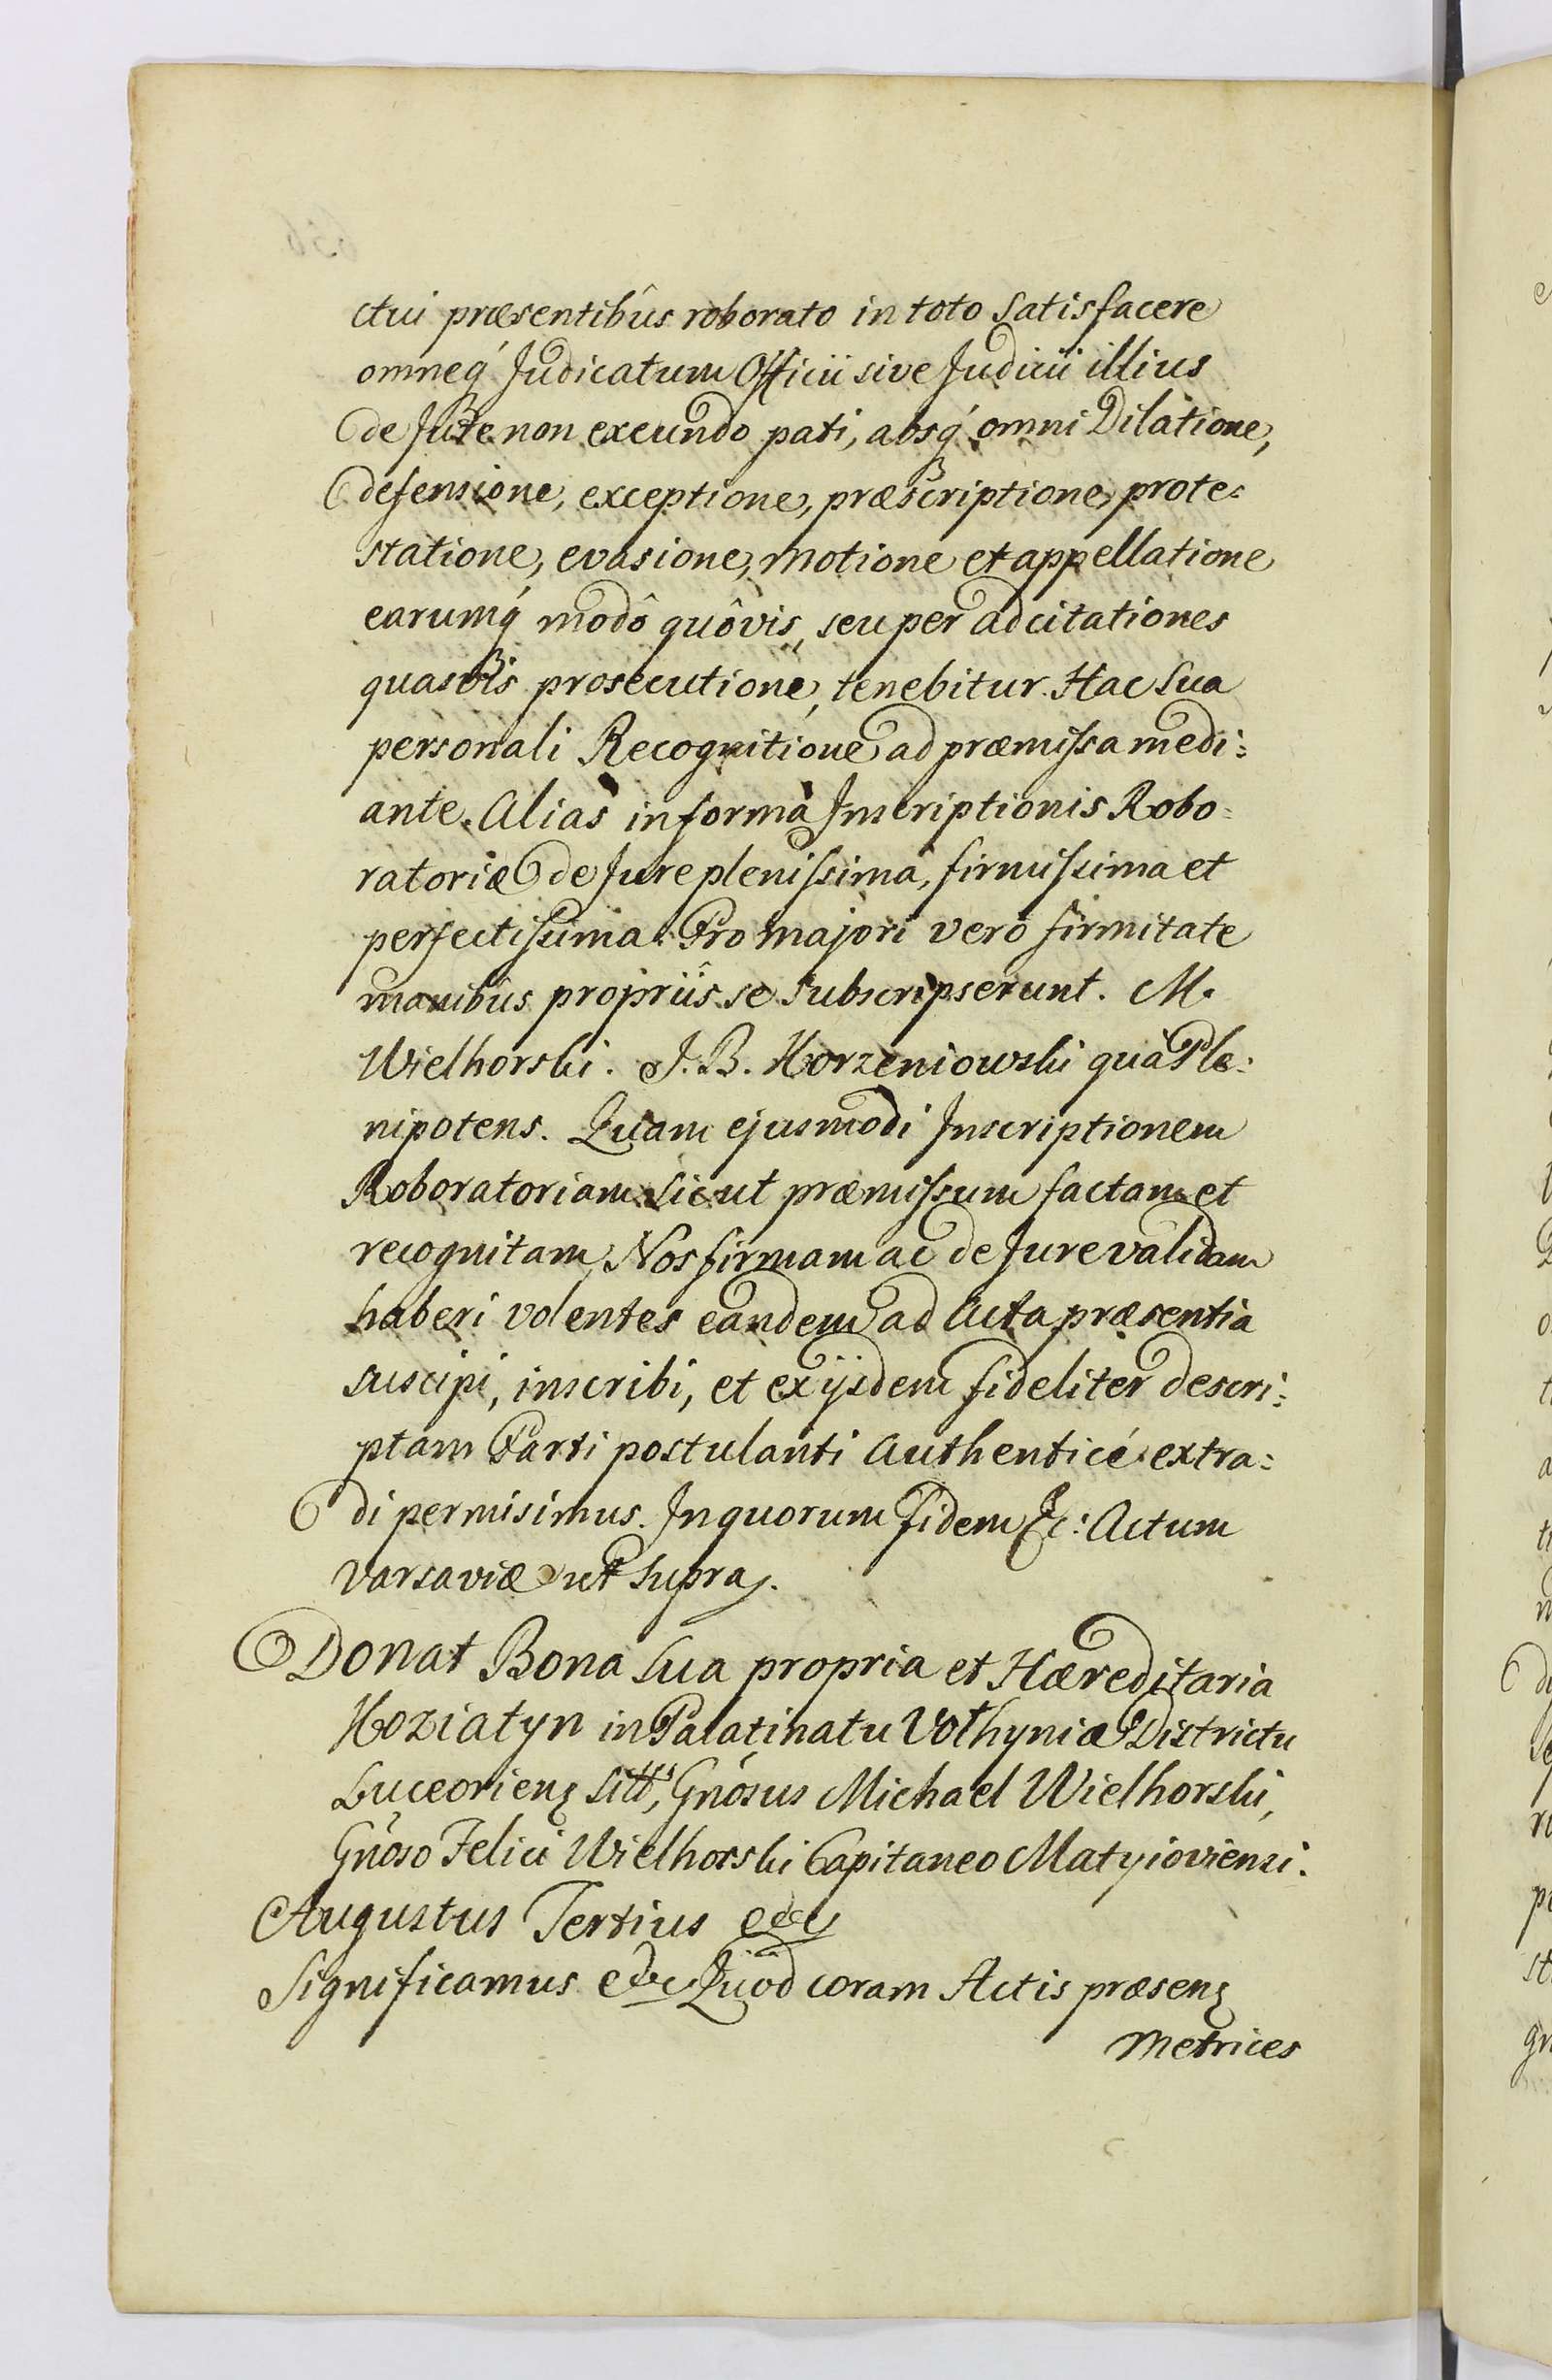 ctui præsentibûs roborato in toto Satisfacere
omneq́ Judicatum Officii sive Judicii illius
de Jure non exeundo pati, absq́ omni Dilatione,
defensione, exceptione, præscriptione, prote=
statione, evasione, motione et appellatione
earumq́ modô quôvis, seu per adcitationes
quasvis prosecutione, tenebitur. Hac Sua
personali Recognitione ad præmissa medi=
ante. Alias in formâ Inscriptionis Robo=
ratoriæ de Jure plenissimâ, firmissima et
perfectissima. Pro majori verò firmitate
manibûs propriis se Subscripserunt. M.
Wielhorski. J. B. Korzeniowski quà Ple=
nipotens. Quam ejusmodi Inscriptionem
Roboratoriam Sicut præmissum factam et
recognitam, Nos firmam ac de Jure validam
haberi volentes eandem ad Acta præsentia
suscipi, inscribi, et ex ijsdem fideliter descri=
ptam Parti postulanti Authenticé extra=
di permisimus. In quorum fidem &c: Actum
Varsaviæ ut Supra.
Donat Bona Sua propria et Hæreditaria
Koziatyn in Palatinatu Volhyniæ Districtu
Luceorien̨ Gnosus Michael Wielhorski,
Gnoso Felici Wielhorski Capitaneo Matyioviensi.
Augustus Tertius &c
Significamus &c Quod coram Actis præsen̨
Metrices